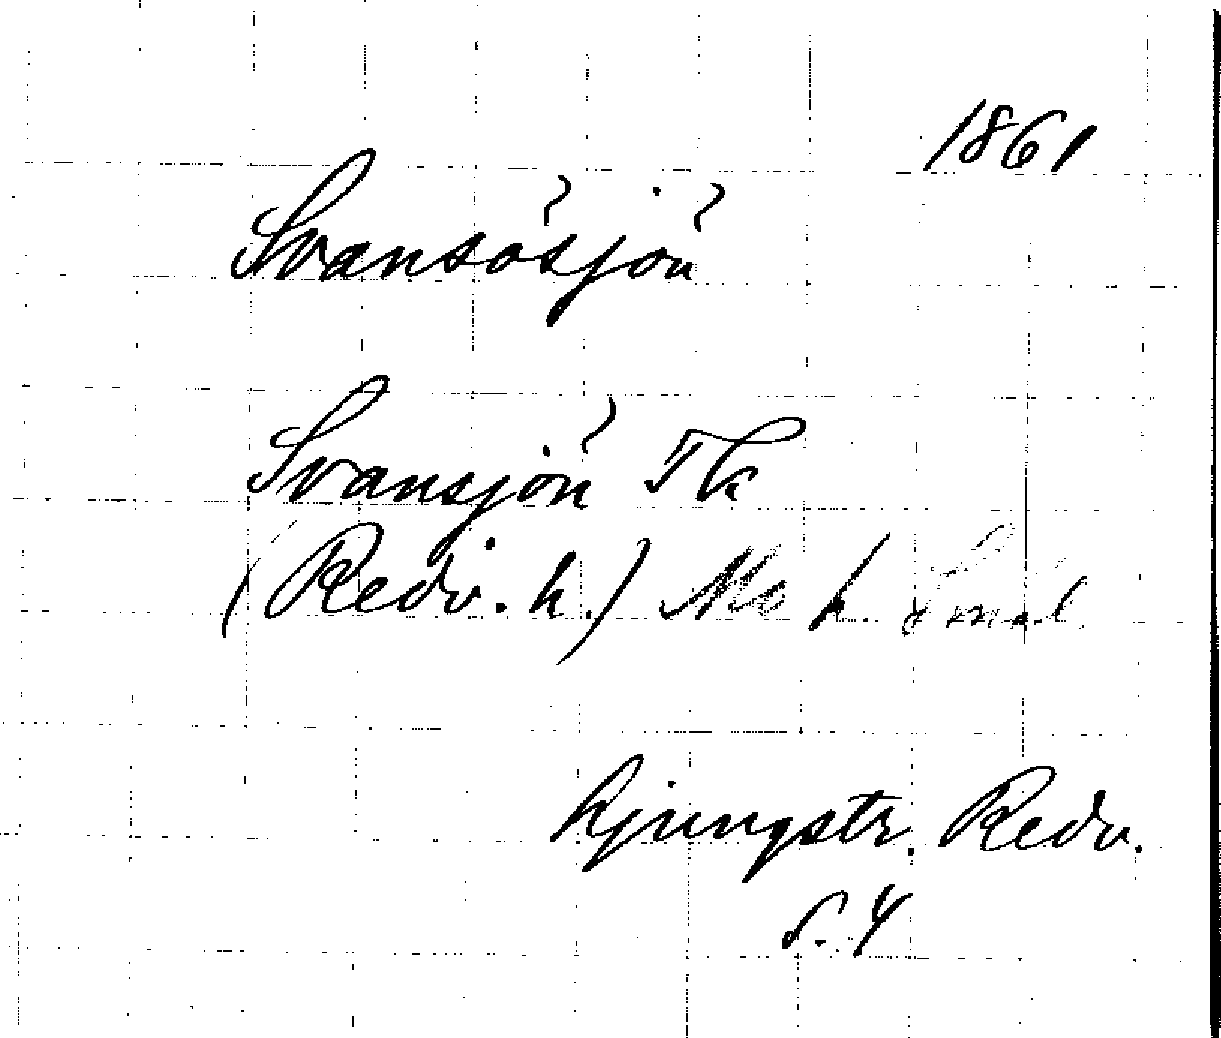 1861
Svansösjön
Svansjön Tk
(Redv. h.) Mo h. Smål.
Ljungstr. Redv.
s. 4